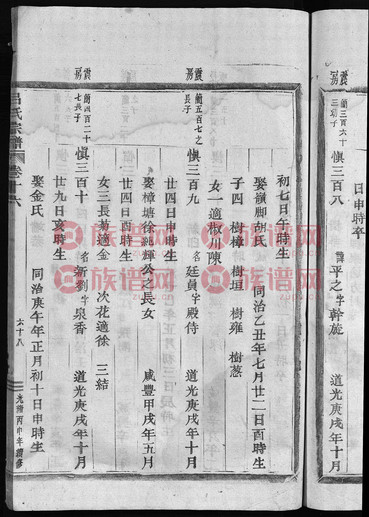 日申時卒
震房
簡三百六十
三幼子
慎三百八
諱平之字幹旋
道光庚戌年十月
初七日午時生
娶嶺腳胡氏
同治乙丑年七月廿二日酉時生
子四 樹樟 樹垣 樹雍 樹蔥
女一適椒川陳
震房
簡五百七之
長子
慎三百九
名廷員字殿侍
道光庚戌年十月
廿四日申時生
娶樟塘徐純輝公之長女
咸豐甲戌年五月
廿四日酉時生
女二長菊適金
次花適徐
三結
震房
簡四百二十
七長子
慎三百十
名新劉字泉香
道光庚戌年十月
廿九日亥時生
娶金氏
同治庚午年正月初十日申時生
呂氏宗譜
卷十六
六十八
光緒丙申年續修
族谱网